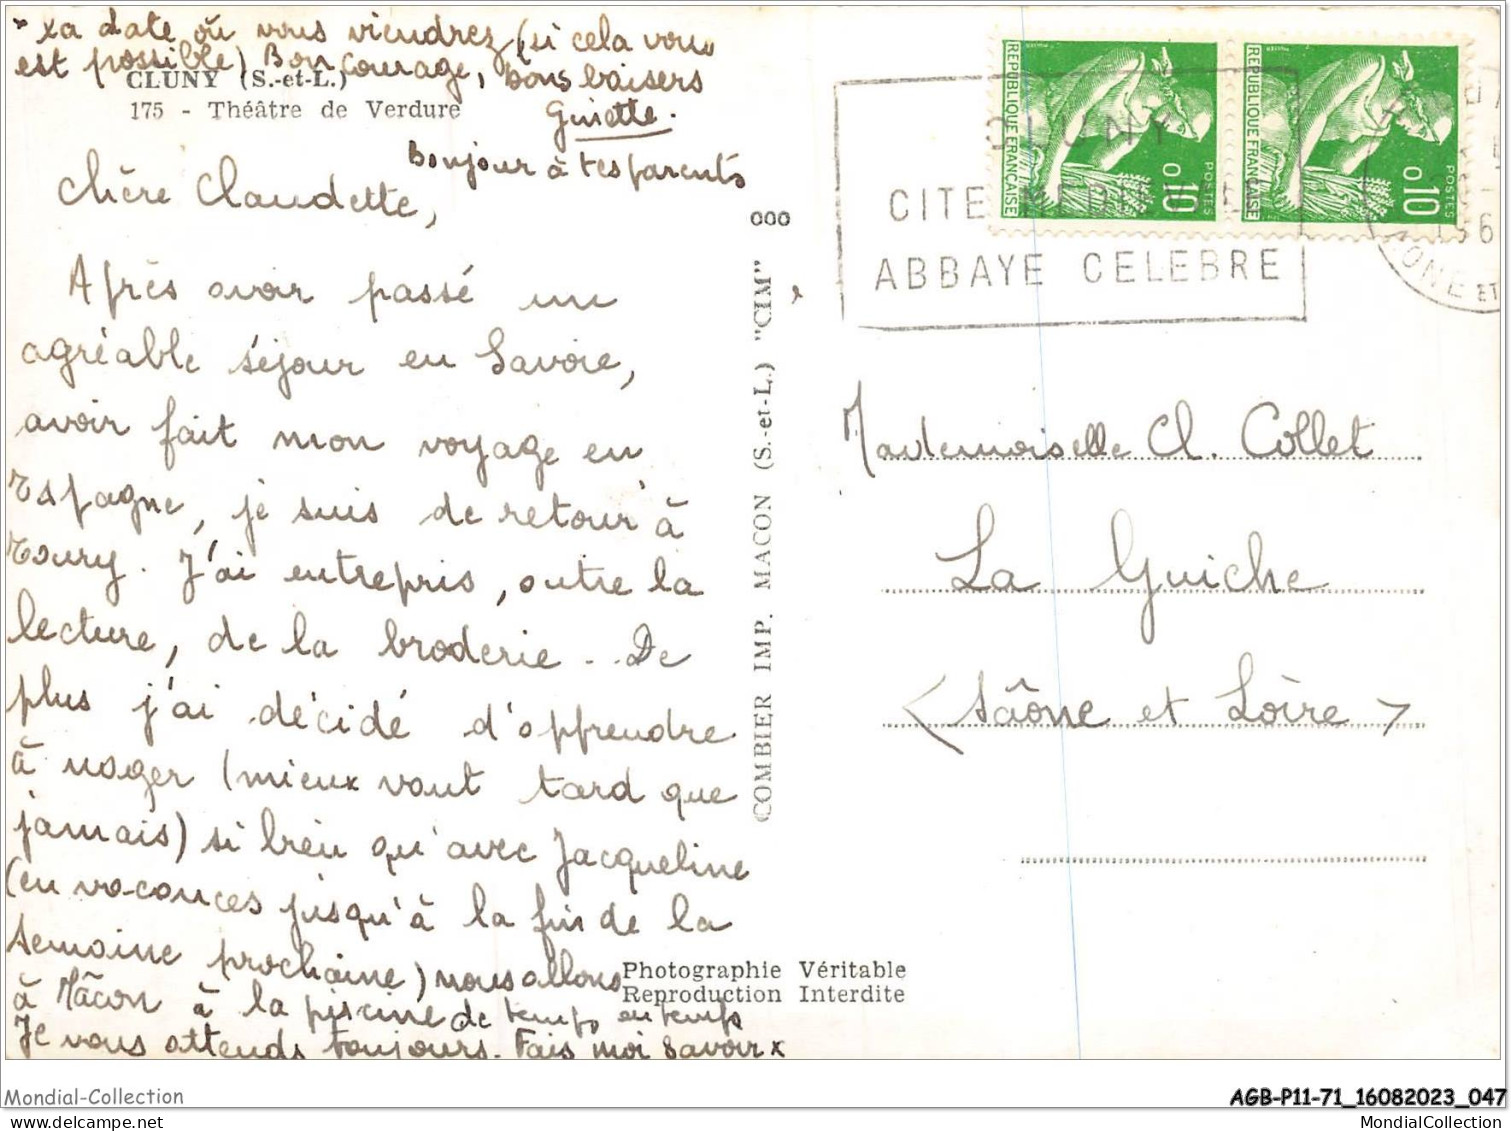 * La date où vous viendrez (si cela vous
est possible) Bon courage, bons baisers
Ginette.
Bonjour à tes parents
CLUNY (S.-et-L.)
175 - Théâtre de Verdure
Chère Claudette,
Après avoir passé un
agréable séjour en Savoie,
avoir fait mon voyage en
Espagne, je suis de retour à
Toury. J'ai entrepris, outre la
lecture, de la broderie.. De
plus j'ai décidé d'apprendre
à nager (mieux vaut tard que
jamais) si bien qu'avec Jacqueline
(en vacances jusqu'à la fin de la
semaine prochaine) nous allons
à Mâcon à la piscine de temps en temps
Je vous attends toujours. Fais moi savoir x
COMBIER IMP. MACON (S.-et-L.) "CIM"
000
Photographie Véritable
Reproduction Interdite
REPUBLIQUE FRANÇAISE
0,10
POSTES
REPUBLIQUE FRANÇAISE
0,10
POSTES
CLUNY
CITE MEDIEVALE
ABBAYE CELEBRE
Mademoiselle Cl. Collet
La Guiche
(Saône et Loire)
Mondial-Collection
AGB-P11-71_16082023_047
www.delcampe.net
MondialCollection